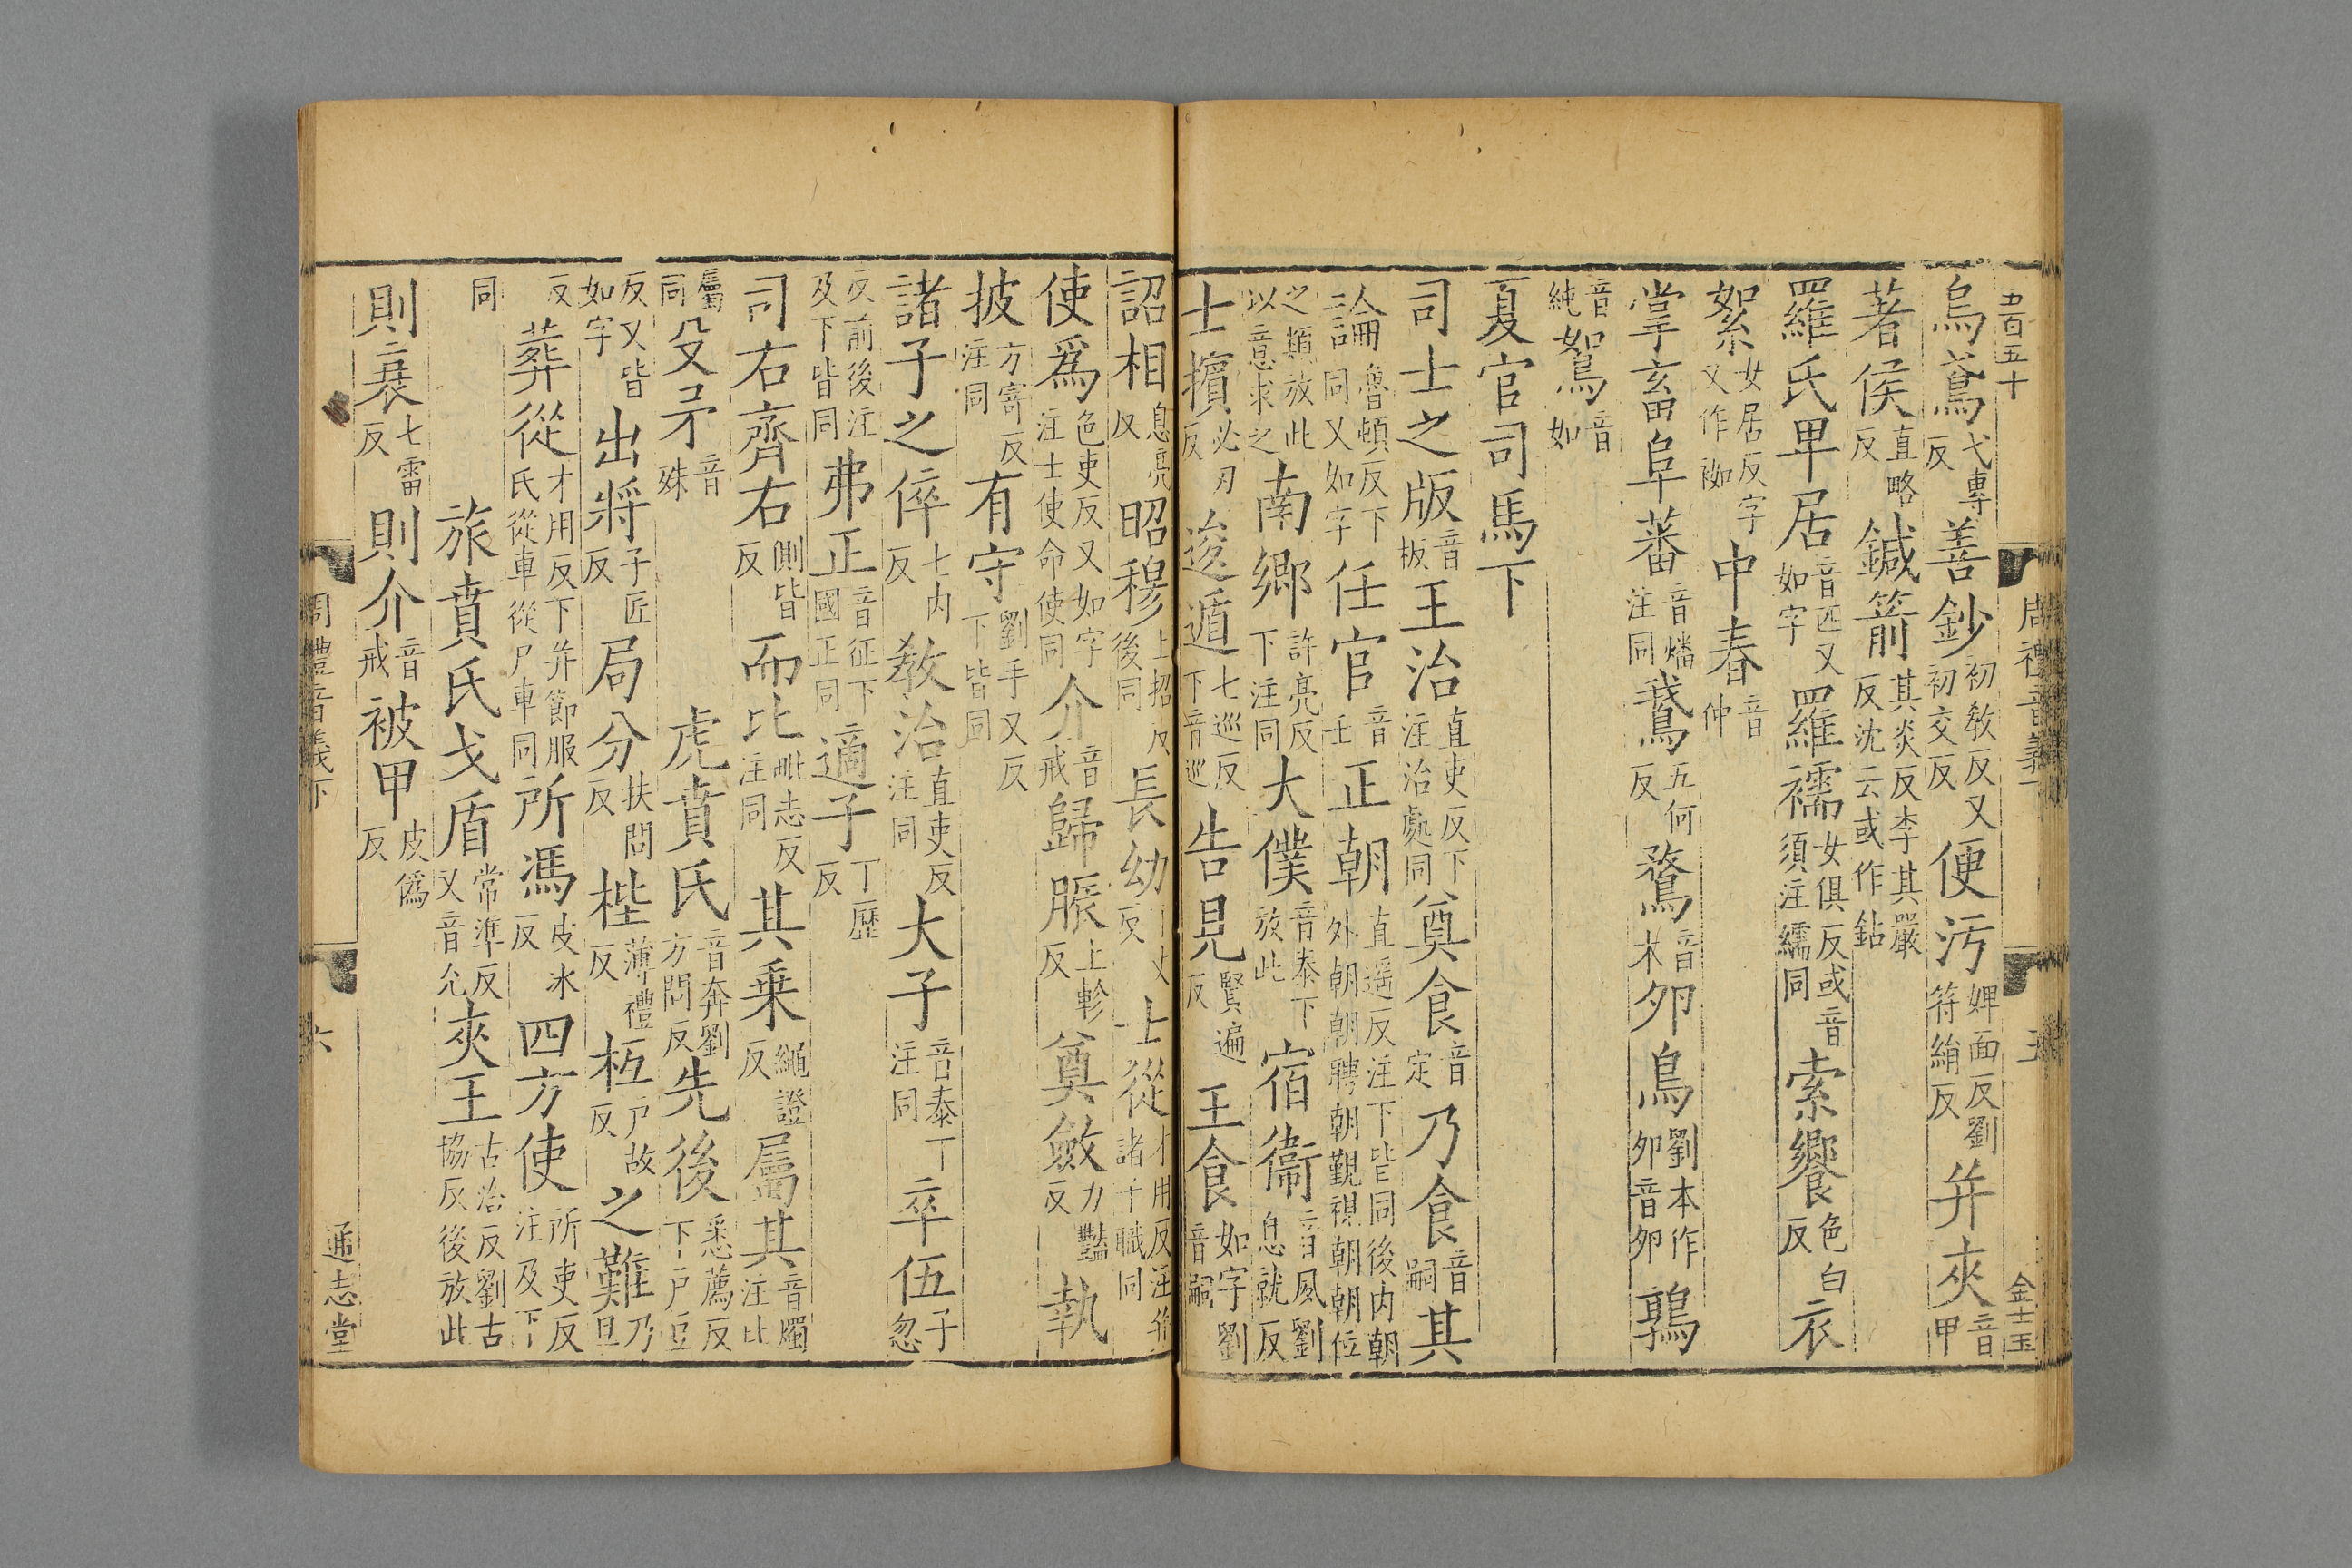 五百五十
周禮音義下
五
金士玉
烏鳶弋專反善鈔初敎反又初交反便污婢面反劉符絹反并夾音甲
著侯直略反鍼箭其炎反李其嚴反沈云或作鉆
羅氏畢居音匹又如字羅襦女俱反或音須注繻同索饗色白反衣
絮女居反字又作袽中春音仲
掌畜阜蕃音燔注同鵞五何反鶩音木夘鳥劉本作夘音夘鶉
音純鴽音如
夏官司馬下
司士之版音板王治直吏反下注治處同奠食音定乃食音嗣其
論魯頓反下同又如字任官音壬正朝直遥反注下皆同後内朝外朝朝聘朝覲視朝朝位
之類放此以意求之南鄉許亮反下注同大僕音泰下放此宿衞音夙劉息就反
士擯必刃反逡遁七巡反下音巡告見賢遍反王食如字劉音嗣
詔相息亮反昭穆上招反後同長幼丁丈反士從才用反注并諸子職同
使爲色吏反又如字注士使命使同介音戒歸脤上軫反奠斂力豔反執
披方寄反注同有守劉手又反下皆同
諸子之倅七内反敎治直吏反注同大子音泰丁注同卒伍子忽
反前後注及下皆同弗正音征下國正同適子丁歷反
司右齊右側皆反而比毗志反注同其乗繩證反屬其音燭注比
屬同殳矛音殊虎賁氏音奔劉方問反先後悉薦反下戶豆
反又皆如字出將子匠反局分扶問反梐薄禮反枑戶故反之難乃旦
反葬從才用反下并節服氏從車從尸車同所馮皮冰反四方使所吏反注及下
同旅賁氏戈盾常準反又音允夾王古洽反劉古協反後放此
則衰七雷反則介音戒被甲皮僞反
周禮音義下
六
通志堂